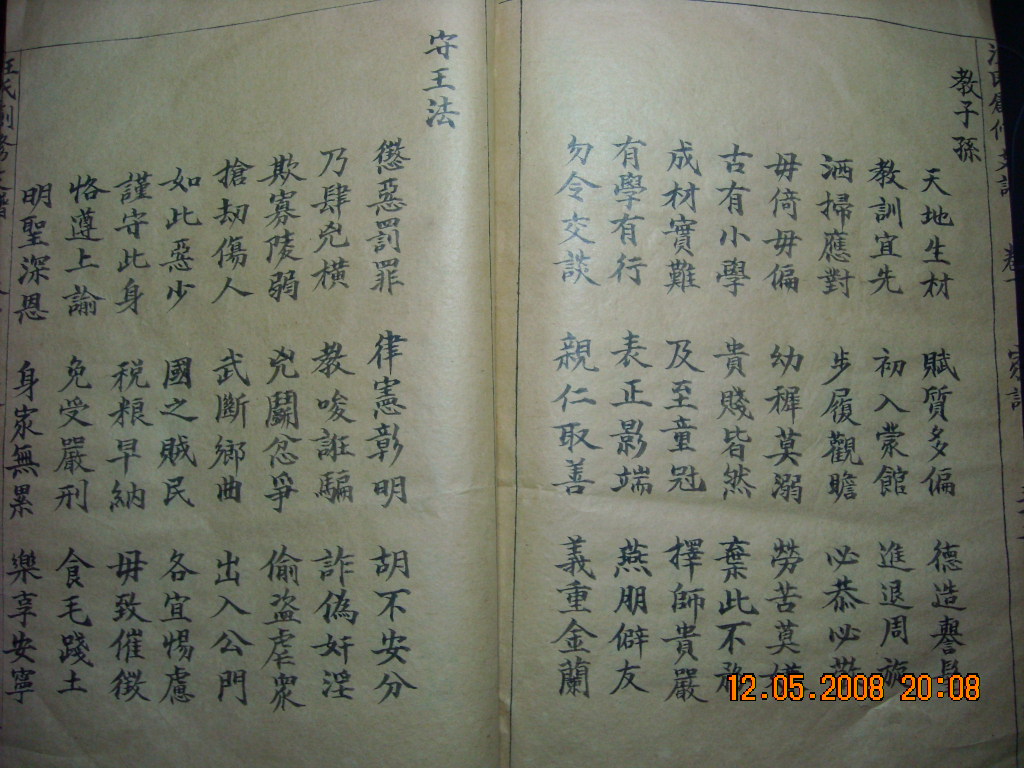 教子孫
天地生材 賦質多偏 德造譽髦
教訓宜先 初入蒙館 進退周旋
洒掃應對 步履觀瞻 必恭必敬
毋倚毋偏 幼穉莫溺 勞苦莫
古有小學 貴賤皆然 棄此不務
成材實難 及至童冠 擇師貴嚴
有學有行 表正影端 燕朋僻友
勿令交談 親仁取善 義重金蘭
守王法
懲惡罰罪 律憲彰明 胡不安分
乃肆兇橫 教唆誑騙 詐偽奸淫
欺寡陵弱 兇鬭忿爭 偷盜虐眾
搶劫傷人 武斷鄉曲 出入公門
如此惡少 國之賊民 各宜惕慮
謹守此身 税粮早納 毋致催徵
恪遵上諭 免受嚴刑 食毛踐土
明聖深恩 身家無累 樂享安寧
12.05.2008 20:08